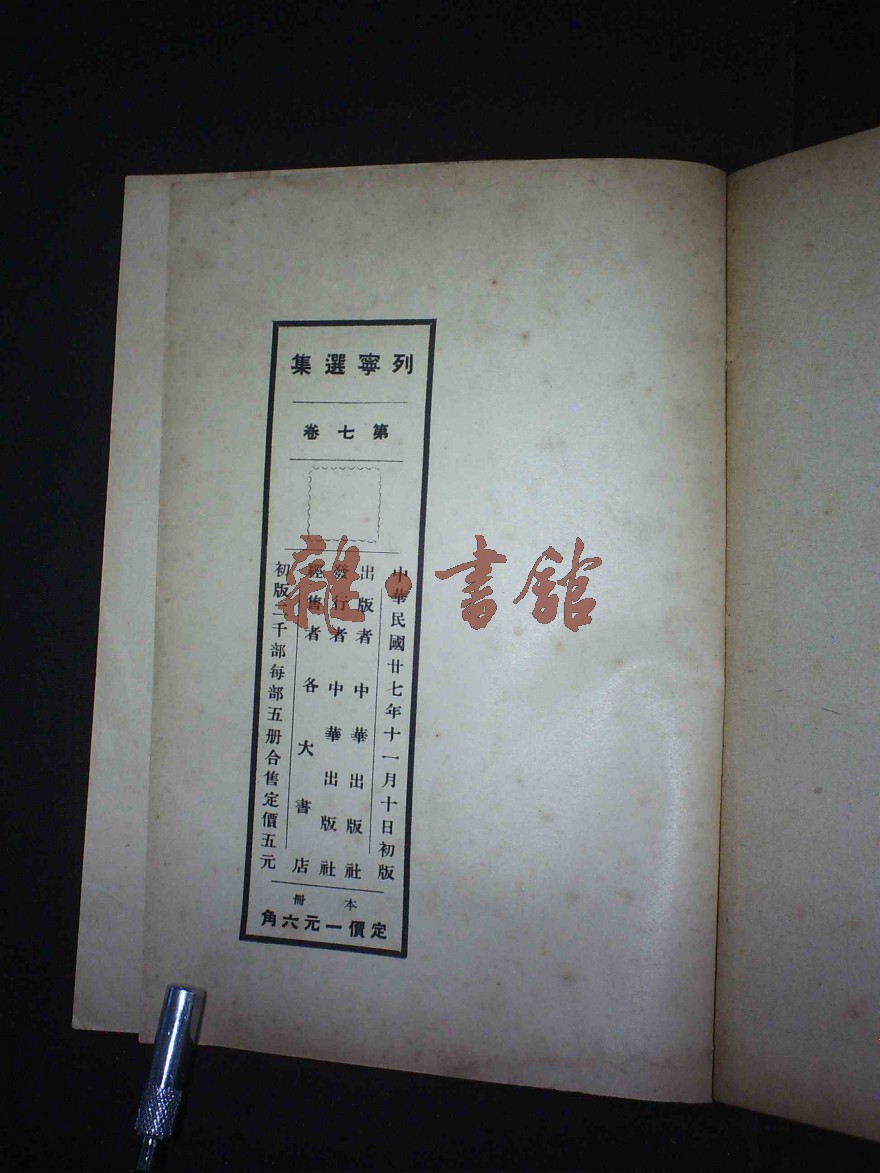 列寧選集
第七卷
中華民國廿七年十一月十日初版
出版者 中華出版社
發行者 中華出版社
經售者 各大書店
初版二千部每部五册合售定價五元
本冊
定價一元六角
雜·書館